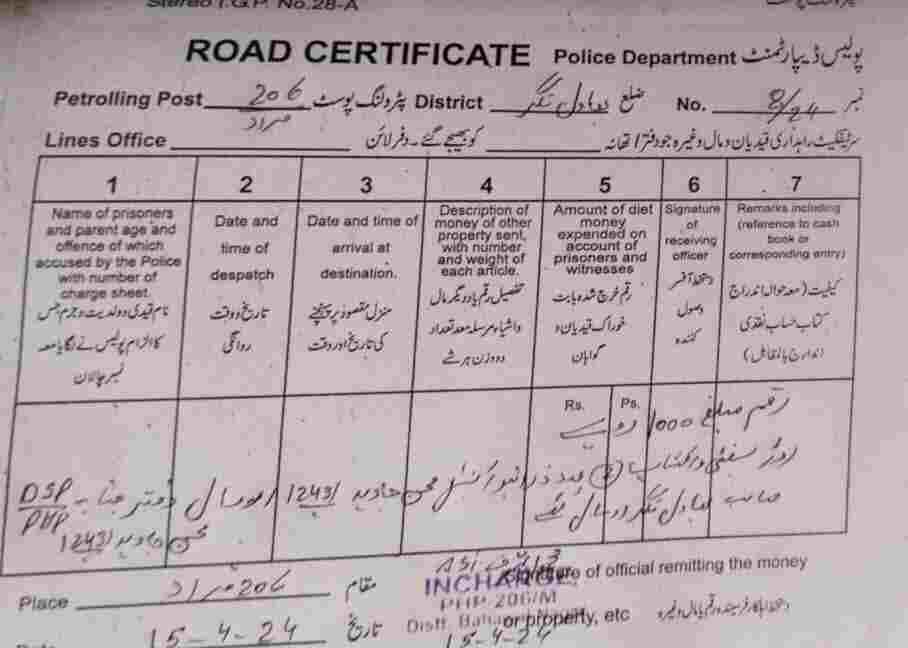 Stereo I.G.P. No.28-A
ROAD CERTIFICATE Police Department پولیس ڈیپارٹمنٹ
Petrolling Post 206 مراد پٹرولنگ پوسٹ District بہاول نگر ضلع No. 8/24 نمبر
Lines Office کو بھیجے گئے۔ دفتر لائن سرٹیفکیٹ راہداری قیدیان و مال وغیرہ جو دفتر / تھانہ
1 2 3 4 5 6 7
Name of prisoners and parent age and offence of which accused by the Police with number of charge sheet.
نام قیدی و ولدیت و جرم جس کا الزام پولیس نے لگایا معہ نمبر چالان
Date and time of despatch
تاریخ و وقت روانگی
Date and time of arrival at destination.
منزل مقصود پر پہنچنے کی تاریخ اور وقت
Description of money of other property sent, with number and weight of each article.
تفصیل رقم یا دیگر مال و اشیاء مرسلہ معہ تعداد و وزن ہر شے
Amount of diet money expended on account of prisoners and witnesses
رقم خرچ شدہ بابت خوراک قیدیان و گواہان
Signature of receiving officer
دستخط آفسر وصول کنندہ
Remarks including (reference to cash book or corresponding entry)
کیفیت (معہ حوالہ اندراج کتاب حساب نقدی
Rs. Ps.
رقم مبلغ 1000 روپے
روڈ سیفٹی
محسن جاوید 1243/ ارسال دفتر جناب DSP/PHP
صاحب بہاول نگر ارسال ہے
محسن جاوید 1243/
ASI
INCHARGE
PHP 206/M
Distt. Bahawal Nagar
Signature of official remitting the money
Place 206 مراد مقام
or property, etc
15-4-24 تاریخ
15-4-24